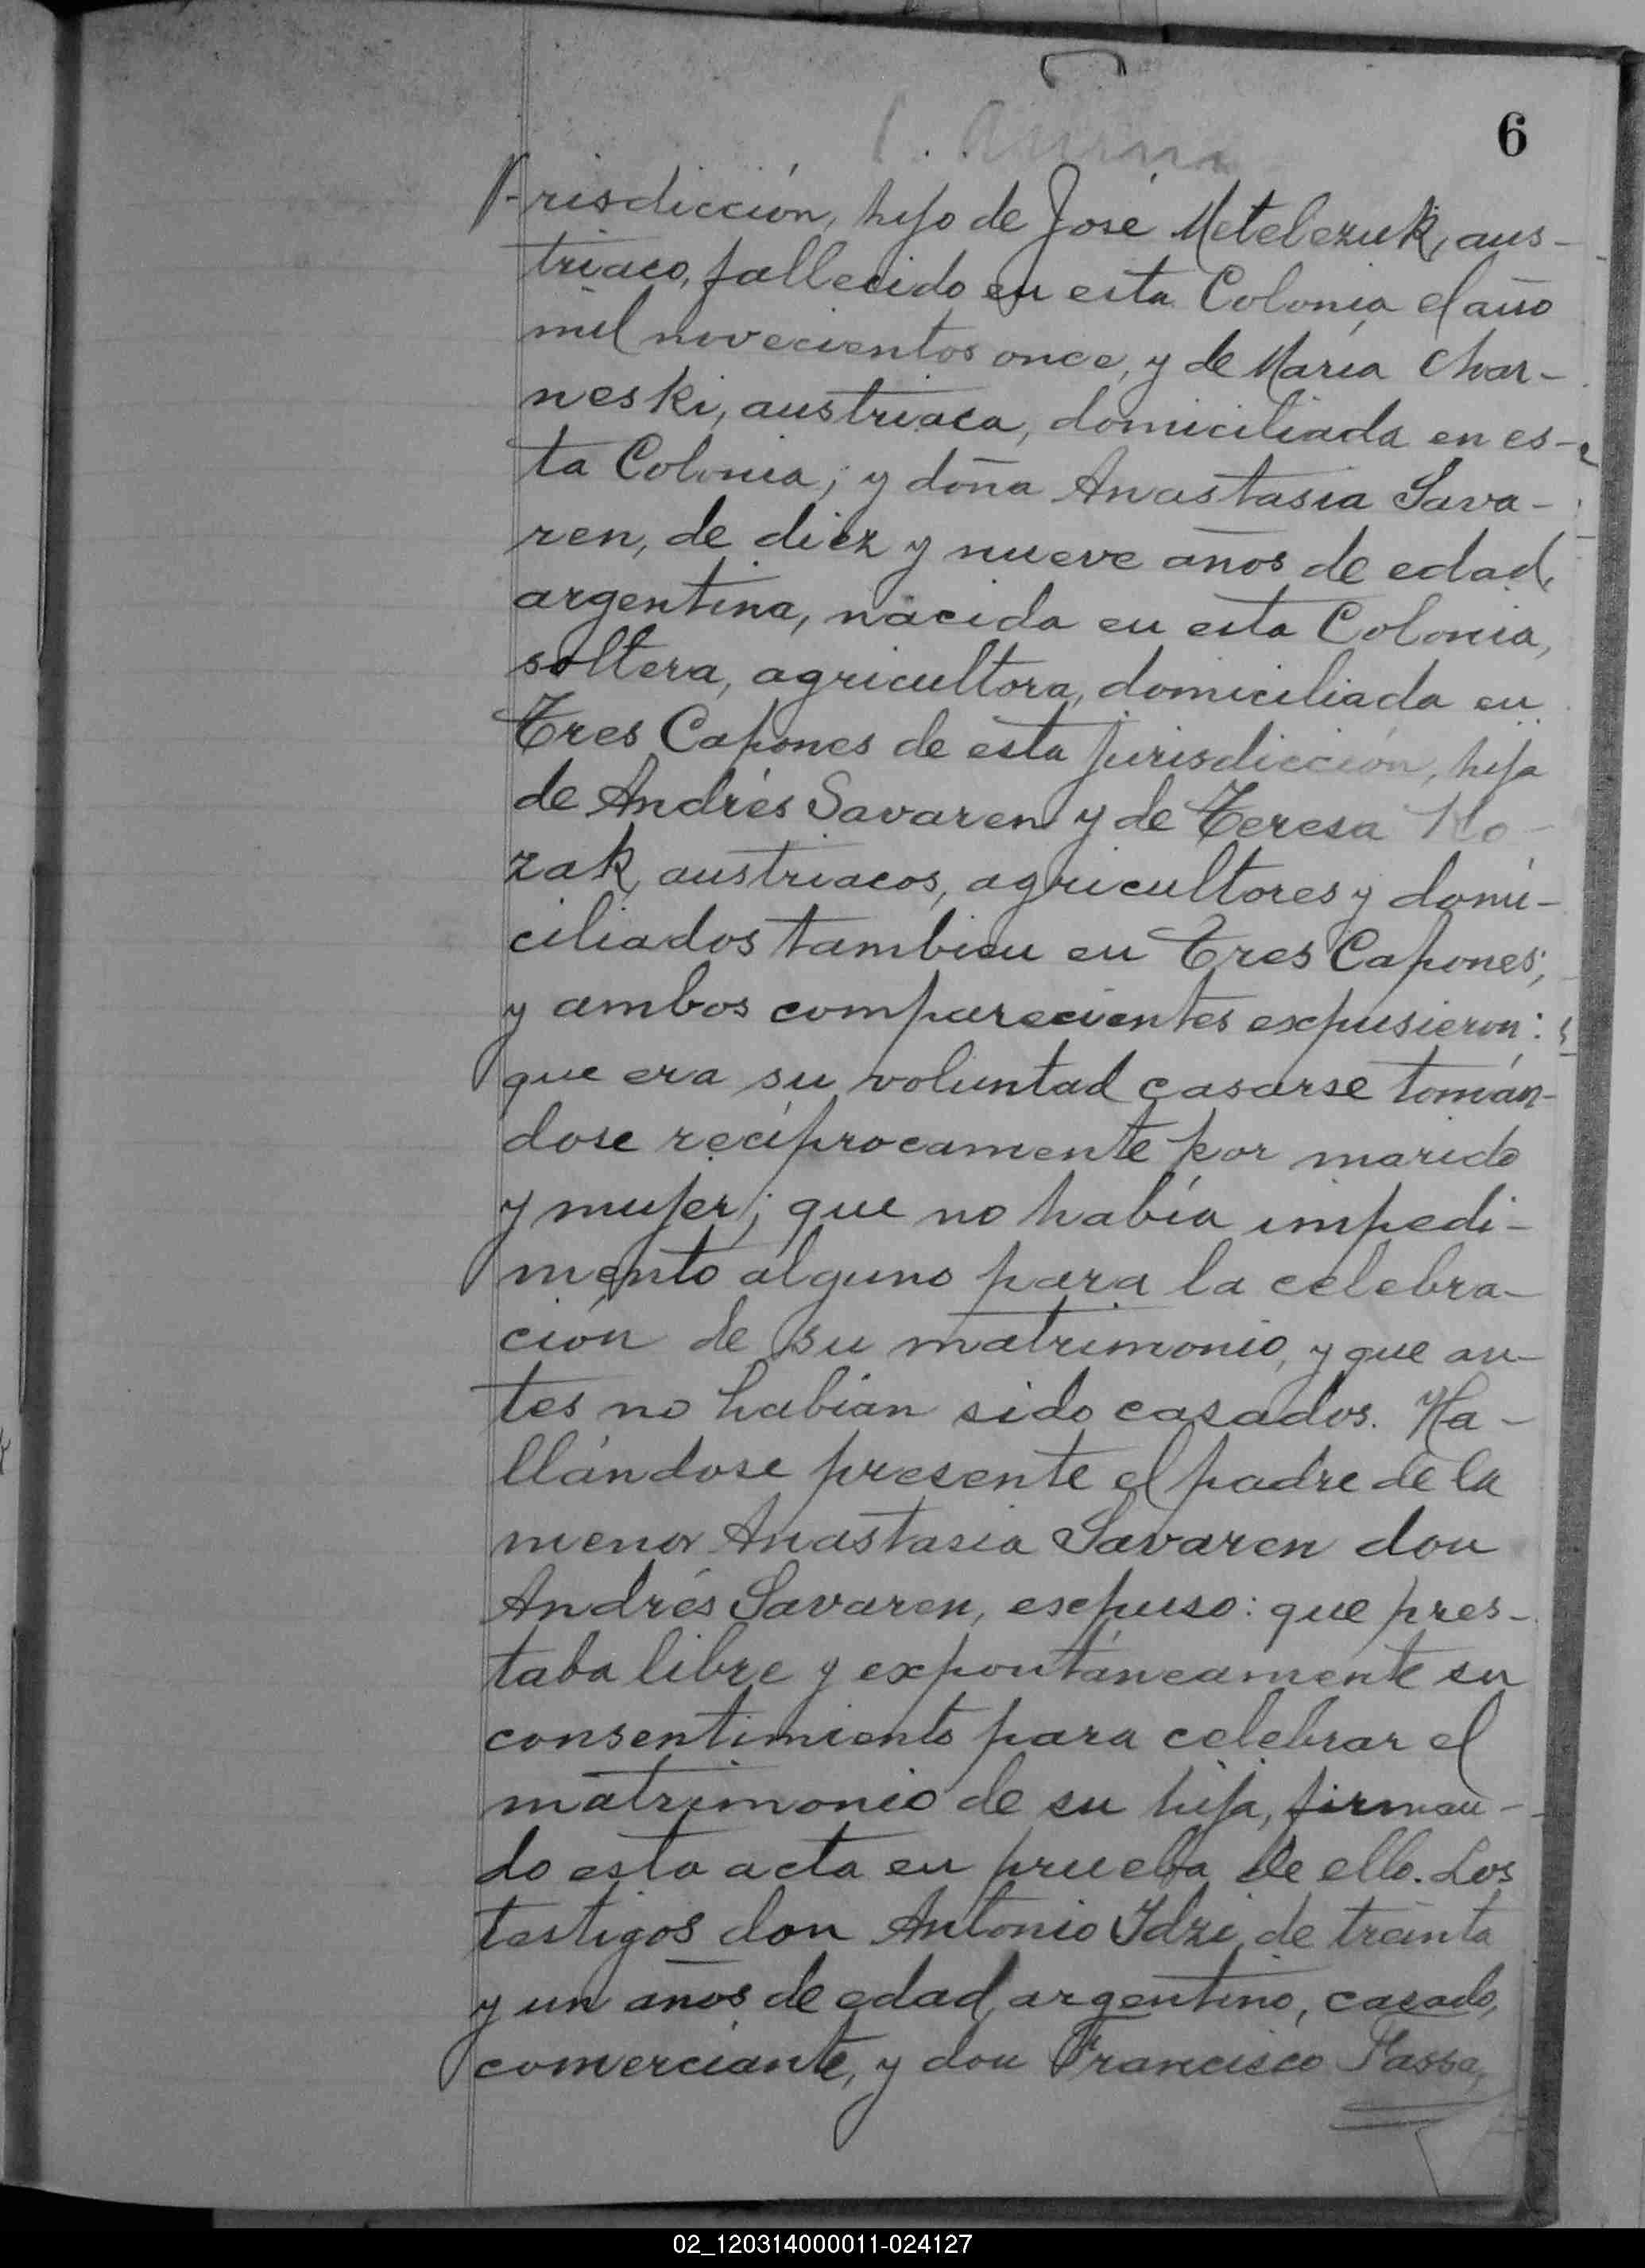 6
risdicción, hijo de José Metelezuk, aus-
triaco, fallecido en esta Colonia el año
mil novecientos once, y de María Char-
neski, austriaca, domiciliada en es-
ta Colonia; y doña Anastasia Sava-
ren, de diez y nueve años de edad,
argentina, nacida en esta Colonia,
soltera, agricultora, domiciliada en
Tres Capones de esta jurisdicción, hija
de Andrés Savaren y de Teresa
zak, austriacos, agricultores y domi-
ciliados tambien en Tres Capones;
y ambos comparecientes expusieron:
que era su voluntad casarse tomán-
dose recíprocamente por marido
y mujer; que no había impedi-
mento alguno para la celebra-
ción de su matrimonio, y que an-
tes no habían sido casados. Ha-
llándose presente el padre de la
menor Anastasia Savaren don
Andrés Savaren, expuso: que pres-
taba libre y expontáneamente su
consentimiento para celebrar el
matrimonio de su hija, firman-
do esta acta en prueba de ello. Los
testigos don Antonio Idzi, de treinta
y un años de edad, argentino, casado,
comerciante, y don Francisco
02_120314000011-024127